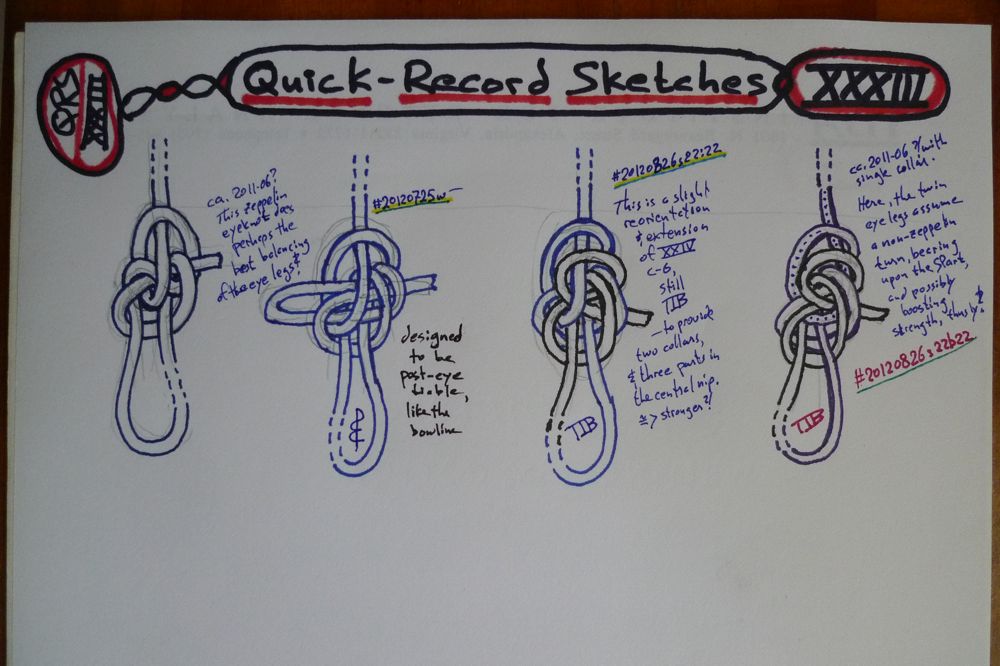 QRS
XXXIII
Quick-Record Sketches
XXXIII
ca. 2011-06?
This zeppelin
eyeknot does
perhaps the
best balancing
of the eye legs!
#20120725w
designed
to be
post-eye
tiable,
like the
bowline
#20120826s22:22
This is a slight
reorientation
& extension
of XXIV
c-6,
still
TIB
—to provide
two collars,
& three parts in
the central nip.
=> stronger?!
TIB
ca. 2011-06 ?/with
single collar.
Here, the twin
eye legs assume
a non-zeppelin
turn, bearing
upon the SPart,
and possibly
boosting
strength, thusly!
#20120826s22b22
TIB